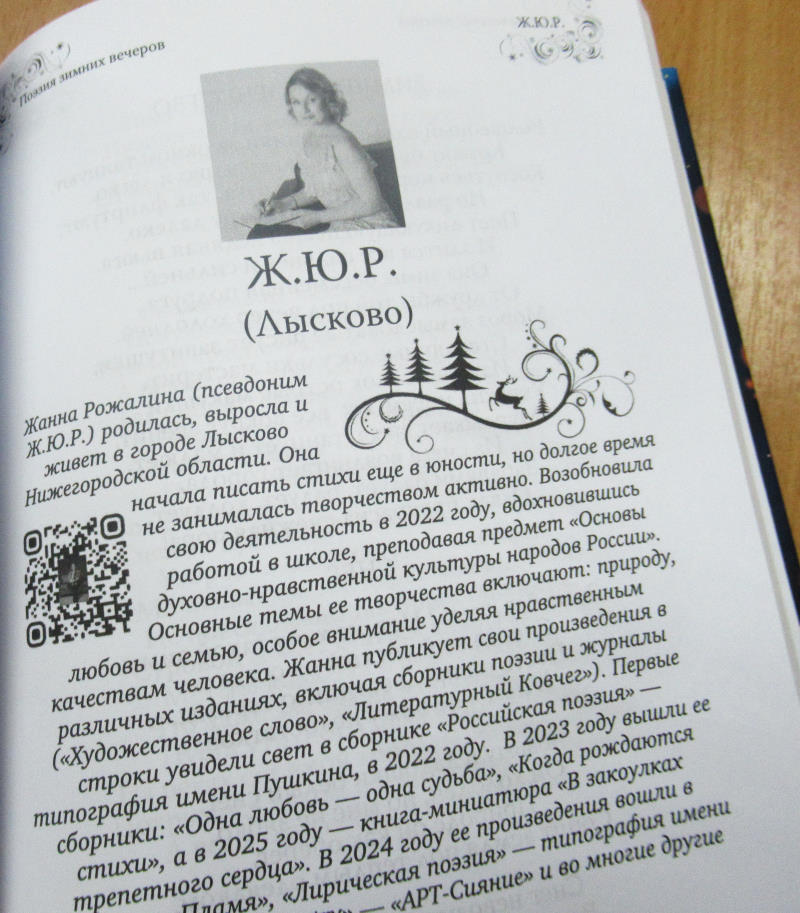 Поэзия зимних вечеров
Ж.Ю.Р.
Ж.Ю.Р.
(Лысково)
Жанна Рожалина (псевдоним
Ж.Ю.Р.) родилась, выросла и
живет в городе Лысково
Нижегородской области. Она
начала писать стихи еще в юности, но долгое время
не занималась творчеством активно. Возобновила
свою деятельность в 2022 году, вдохновившись
работой в школе, преподавая предмет «Основы
духовно-нравственной культуры народов России».
Основные темы ее творчества включают: природу,
любовь и семью, особое внимание уделяя нравственным
качествам человека. Жанна публикует свои произведения в
различных изданиях, включая сборники поэзии и журналы
(«Художественное слово», «Литературный Ковчег»). Первые
строки увидели свет в сборнике «Российская поэзия» —
типография имени Пушкина, в 2022 году. В 2023 году вышли ее
сборники: «Одна любовь — одна судьба», «Когда рождаются
стихи», а в 2025 году — книга-миниатюра «В закоулках
трепетного сердца». В 2024 году ее произведения вошли в
Пламя», «Лирическая поэзия» — типография имени
— «АРТ-Сияние» и во многие другие